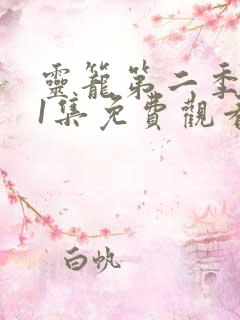 靈籠第二季
1集免費觀看
白帆